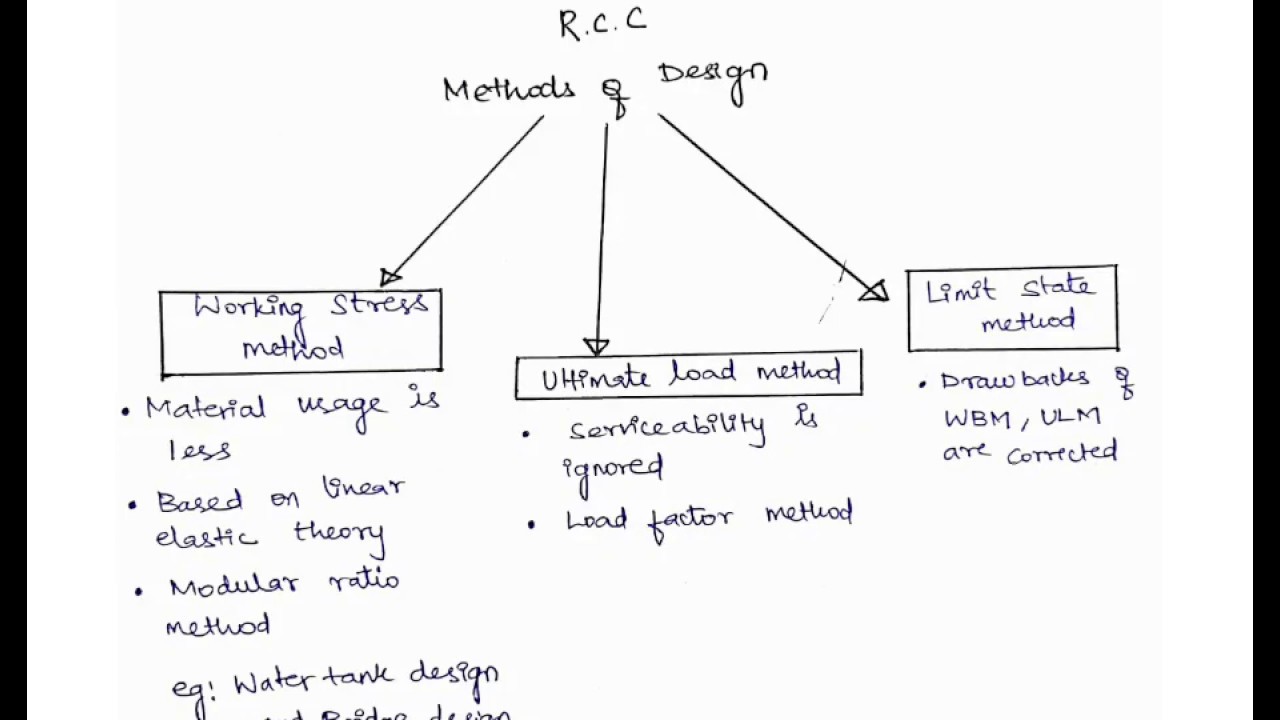 R.C.C
Methods of Design
Working Stress
method
• Material usage is
less
• Based on linear
elastic theory
• Modular ratio
method
eg: Water tank design
Bridge design
Ultimate load method
• Serviceability is
ignored
• Load factor method
Limit state
method
• Drawbacks of
WBM, ULM
are corrected